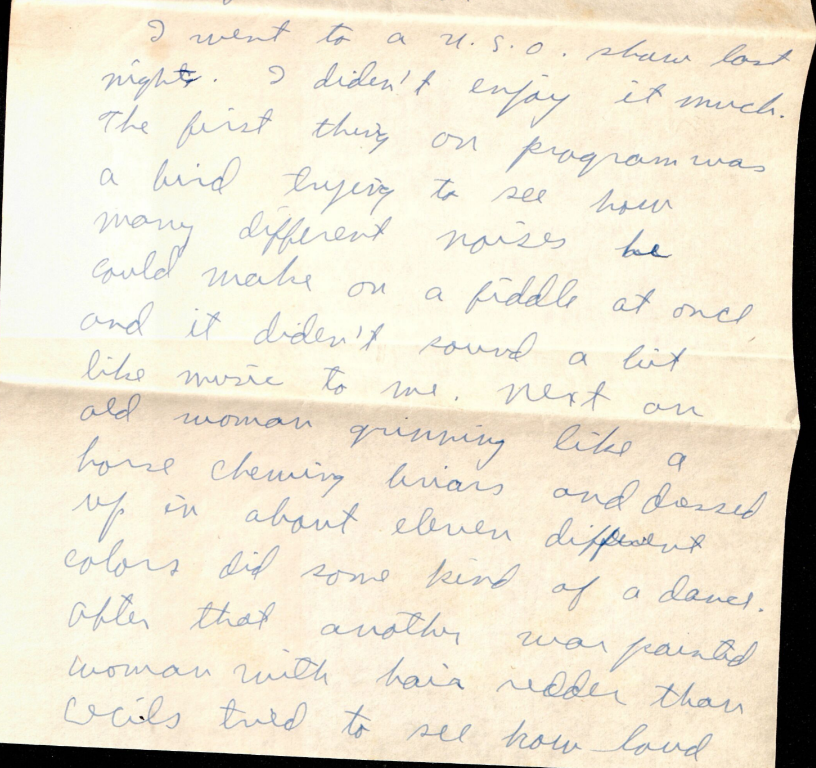 I went to a U.S.O. show last
night. I diden't enjoy it much.
The first thing on program was
a bird trying to see how
many different noises he
could make on a fiddle at once,
and it diden't sound a bit
like music to me. Next an
old woman grinning like a
horse chewing briars and dressed
up in about eleven different
colors did some kind of a dance.
After that another war painted
woman with hair redder than
Cecils tried to see how loud